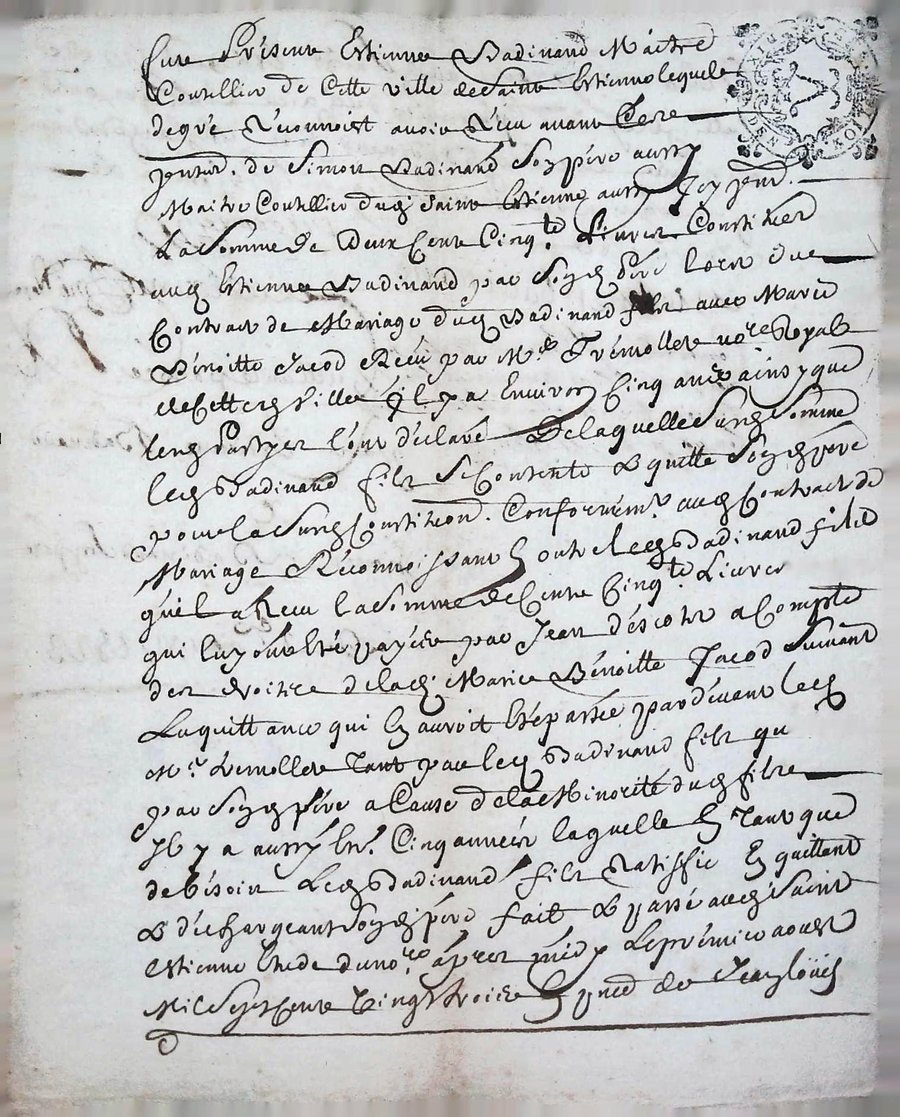 Fut Présent Estienne Badinand Maitre
Coutellier de Cette ville de Saint Estienne lequel
de gré Reconnoist avoir Receu avant Ces
pntes. de Simon Badinand Son père aussy
Maitre Coutellier dud Saint Estienne aussy Icy pnt.
La Somme de Deux Cent Cinqte. Livres Constituer
aud Estienne Badinand par Sond père lors du
Contract de Mariage dud Badinand fils avec Marie
Bénoitte Jacod Receu par Me Trémollet nore Royal
de Cette ville Il y a Environ Cinq années ainsy que
lesd partyes l'ont déclaré De laquelle Susd Somme
led Badinand fils Se Contente & quitte Sond père
pour la Susd Constitution. Conformemt. aud Contract de
Mariage Reconnoissant En outre led Badinand fils
qu'il a Receu la Somme de Cent Cinqte Livres
qui luy ont été payées par Jean déscotr a Compte
des droitz de lad. Marie Bénoitte Jacod Suivant
La quittance qui En auroit été passée pardevant led
Me. Trémollet Tant par led Badinand fils que
par Sond père a Cause de la Minorité dud fils
Il y a aussy Env. Cinq années laquelle En Tant que
de bésoin Led Badinand fils Ratiffie En quittant
& déchargeant Sond père fait & passé aud Saint
Estienne Etude du nore. après midy Le prémier aoust
Mil Sept Cent Vingt trois En pnce de Jean Loüis